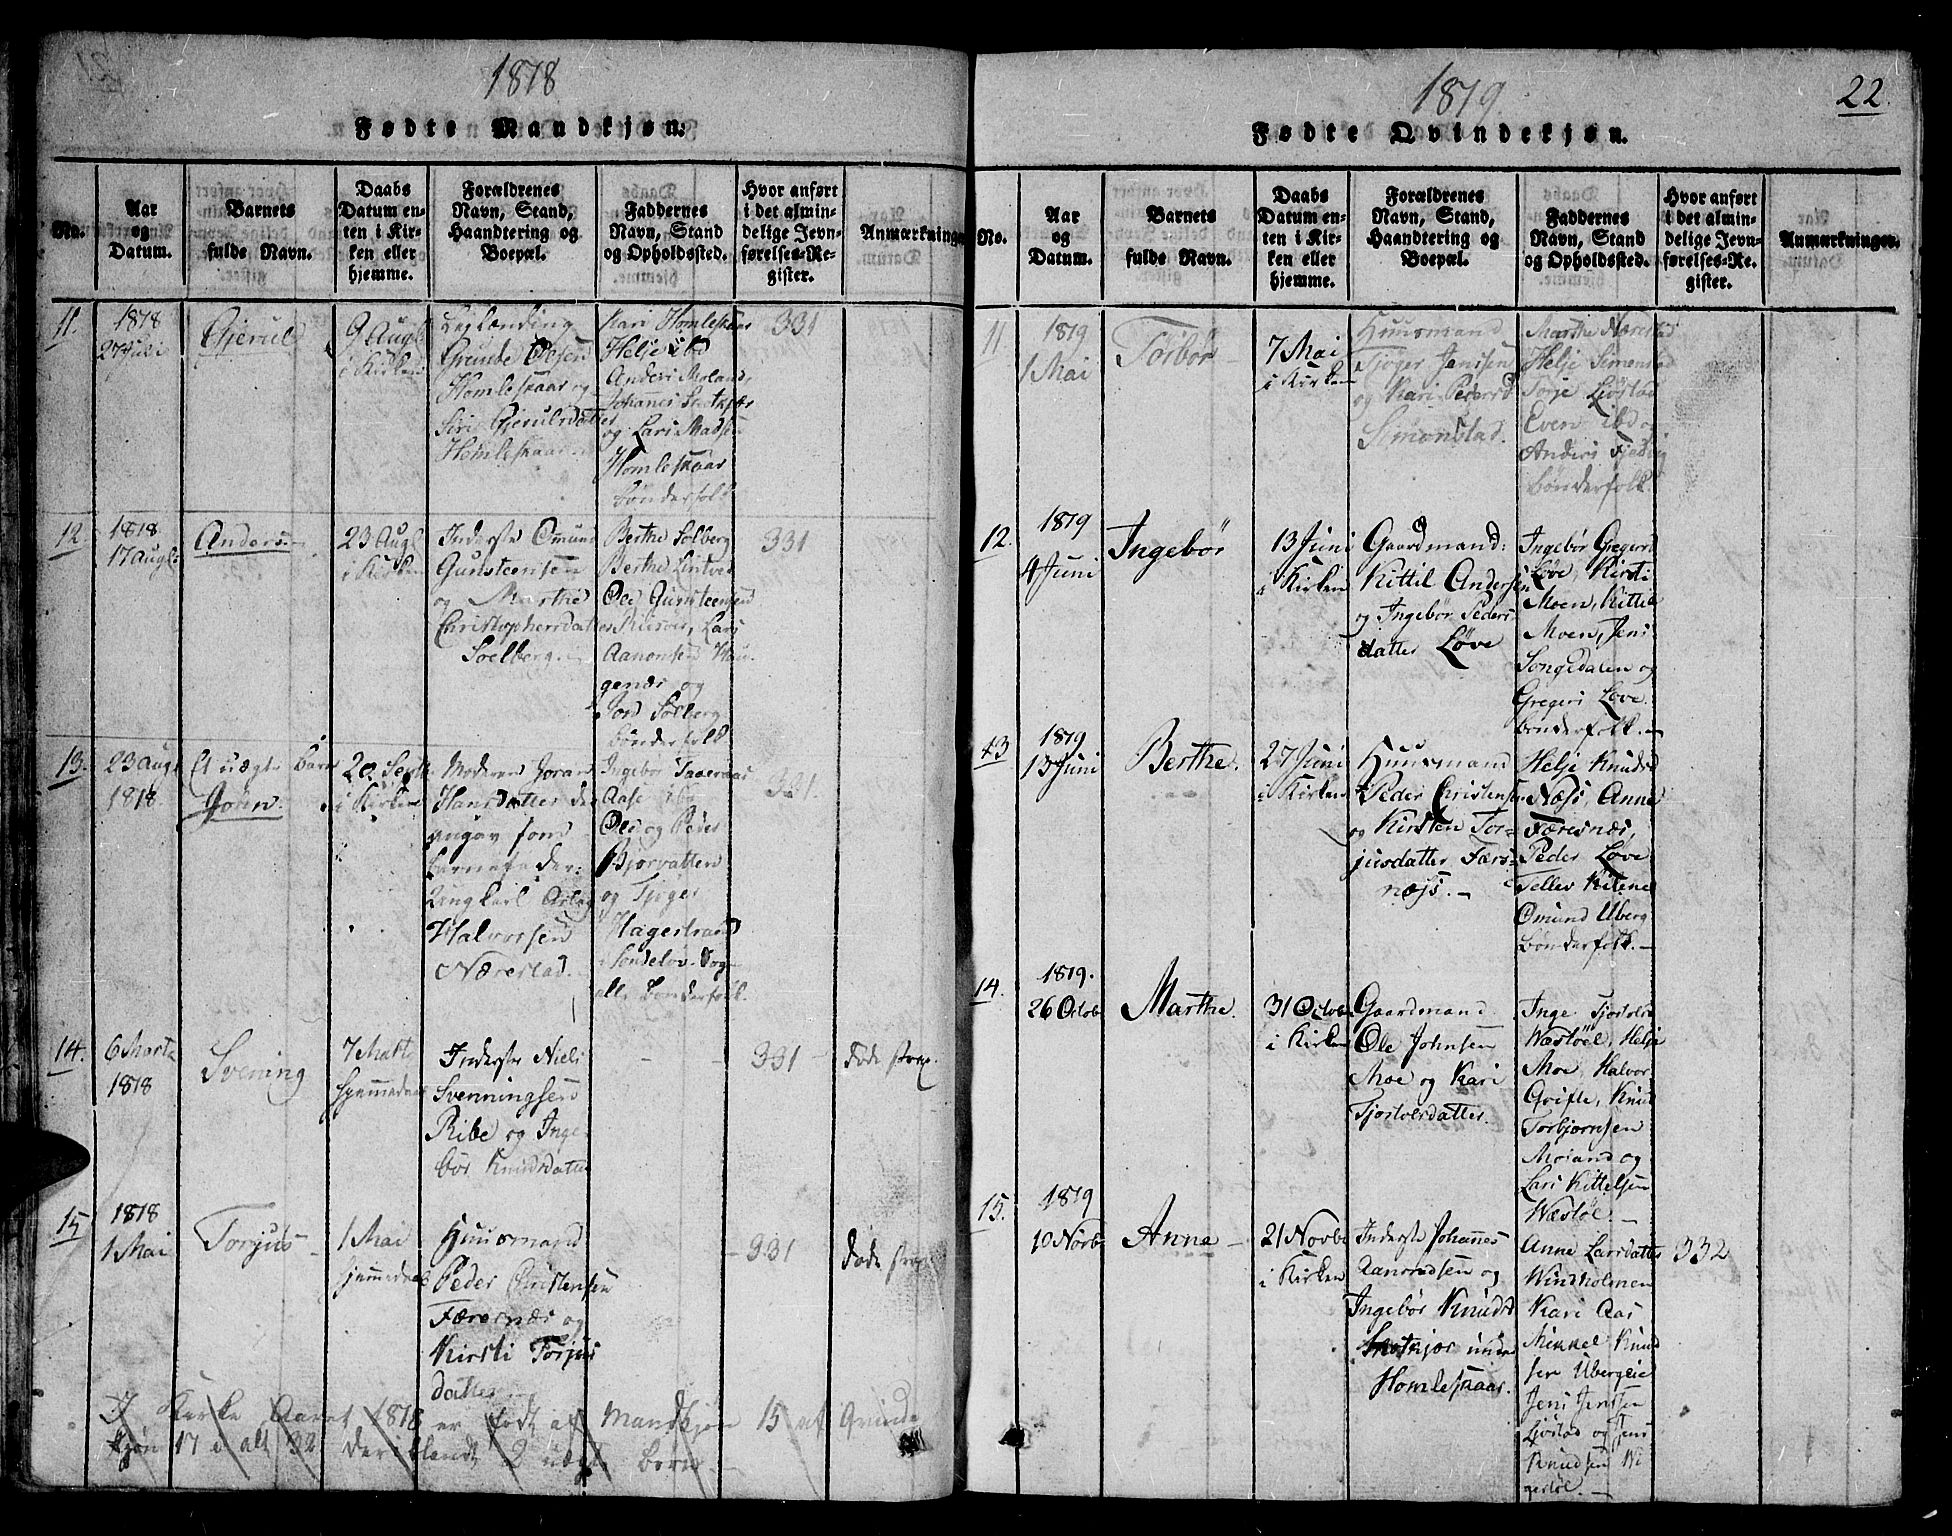 1818
Fødte Mandkjøn.
No.
Aar
og
Datum.
Barnets
fulde Navn.
Daabs
Datum en-
ten i Kir-
ken eller
hjemme.
Forældrenes
Navn, Stand,
Haandtering og
Boepæl.
Faddernes
Navn, Stand
og Opholdssted.
Hvor anført
i det almin-
delige Jevn-
førelses-Re-
gister.
Anmærkninger
11.
1818
27 Juli
Gjerul
9 Augl
i Kirken
Grunde Olesen
Homleskaar og
Siri Gjerulsdatter
Homleskaar
Kari Homleskaar
Helje ibd
Anders Moland,
Johannes
og Lars Madsen
Homleskaar
bønderfolk
331
12
1818
17 Augl:
Anders
23 Augl
i Kirken
Inderste Omund
Gunsteensen
og Marthe
Christophersdatter
Soelberg.
Berthe Solberg
Berthe Lintved
Ole Gunsteensen
Lars
Aanonsen Hau-
genes og
Jon Solberg
bønderfolk
331
13.
23 Augl
1818
Et uægte Barn
Gonn.
20 Septbr
i Kirken
Moderen Joran
Hansdatter der
angav som
barnefader:
Ungkarl Aslag
Halvorsen
Nærestad.
Ingebør
Aase ibd
Ole og Peder
Bjorvatten
og Tjøger
Hagestrand
i Søndeløv Sogn
alle bønderfolk.
331.
14.
6 Marts
1818
Svening
7 Marts
hjemmedøbt
Inderste Niels
Svenningsen
Ribe og Inge-
bør Knudsdatter
331
døde strax
15
1818
1 Mai
Torjus
1 Mai
hjemmedøbt
Huusmand
Peder Christensen
Færesnæs og
Kirsti Torjus
datter
331
døde strax
I Kirke Aaret 1818 er født af Mandkjøn 15 af Qvinde
kjøn 17 i alt 32 deriblandt 2 uægte børn
1819
22.
Fødte Qvindekjøn.
No.
Aar
og
Datum.
Barnets
fulde Navn.
Daabs
Datum en-
ten i Kir-
ken eller
hjemme.
Forældrenes
Navn, Stand,
Haandtering og
Boepæl.
Faddernes
Navn, Stand
og Opholdssted.
Hvor anført
i det almin-
delige Jevn-
førelses-Re-
gister.
Anmærkninger.
11
1819
1 Mai
Torbør
7 Mai
i Kirken
Huusmand
Tjøger Jensen
og Kari Pedersd
Simonstad.
Marthe Nærestad
Helje Simonstad
Torje Ljøstad
Even ibd og
Anders
bønderfolk.
12.
1819
4 Juni
Ingebør
13 Juni
i Kirken
Gaardmand:
Kittil Andersen
og Ingebør Peders-
datter Løve
Ingebør Gregersd
Løve, Kirsti
Moen, Kittil
Moen, Jens
Songedalen og
Gregers Løve.
bønderfolk.
13
1819
13 Juni
Berthe.
27 Juni
i Kirken
Huusmand
Peder Christensen
og Kirsten Tor-
jusdatter Færs-
næss.
Helje Knudsd
Næss, Anne
Færesnæs,
Peder Løve
Tellev Kitene
Omund Uberg
bønderfolk.
14.
1819.
26 Octob
Marthe.
31 Octob.
i Kirken
Gaardmand
Ole Johnsen
Moe og Kari
Tjostolvsdatter.
Inge Tjostolvsd
Wæstøel, Helje
Moe, Halvor
Qvifte, Knud
Torbjørnsen
Moland og
Lars Kittelsen
Wæstøl.
15.
1819
10 Novb
Anne
21 Novb
i Kirken
Inderste Johannes
Aanonsen og
Ingebør Knudsd
under
Homleskaar.
Anne Larsdatter
Windholmen
Kari Aas
Mikkel Knud
sen Ubergsie
Jens Jensen
Ljøstad og Jens
Knudsen Wi
gerstøl.
332